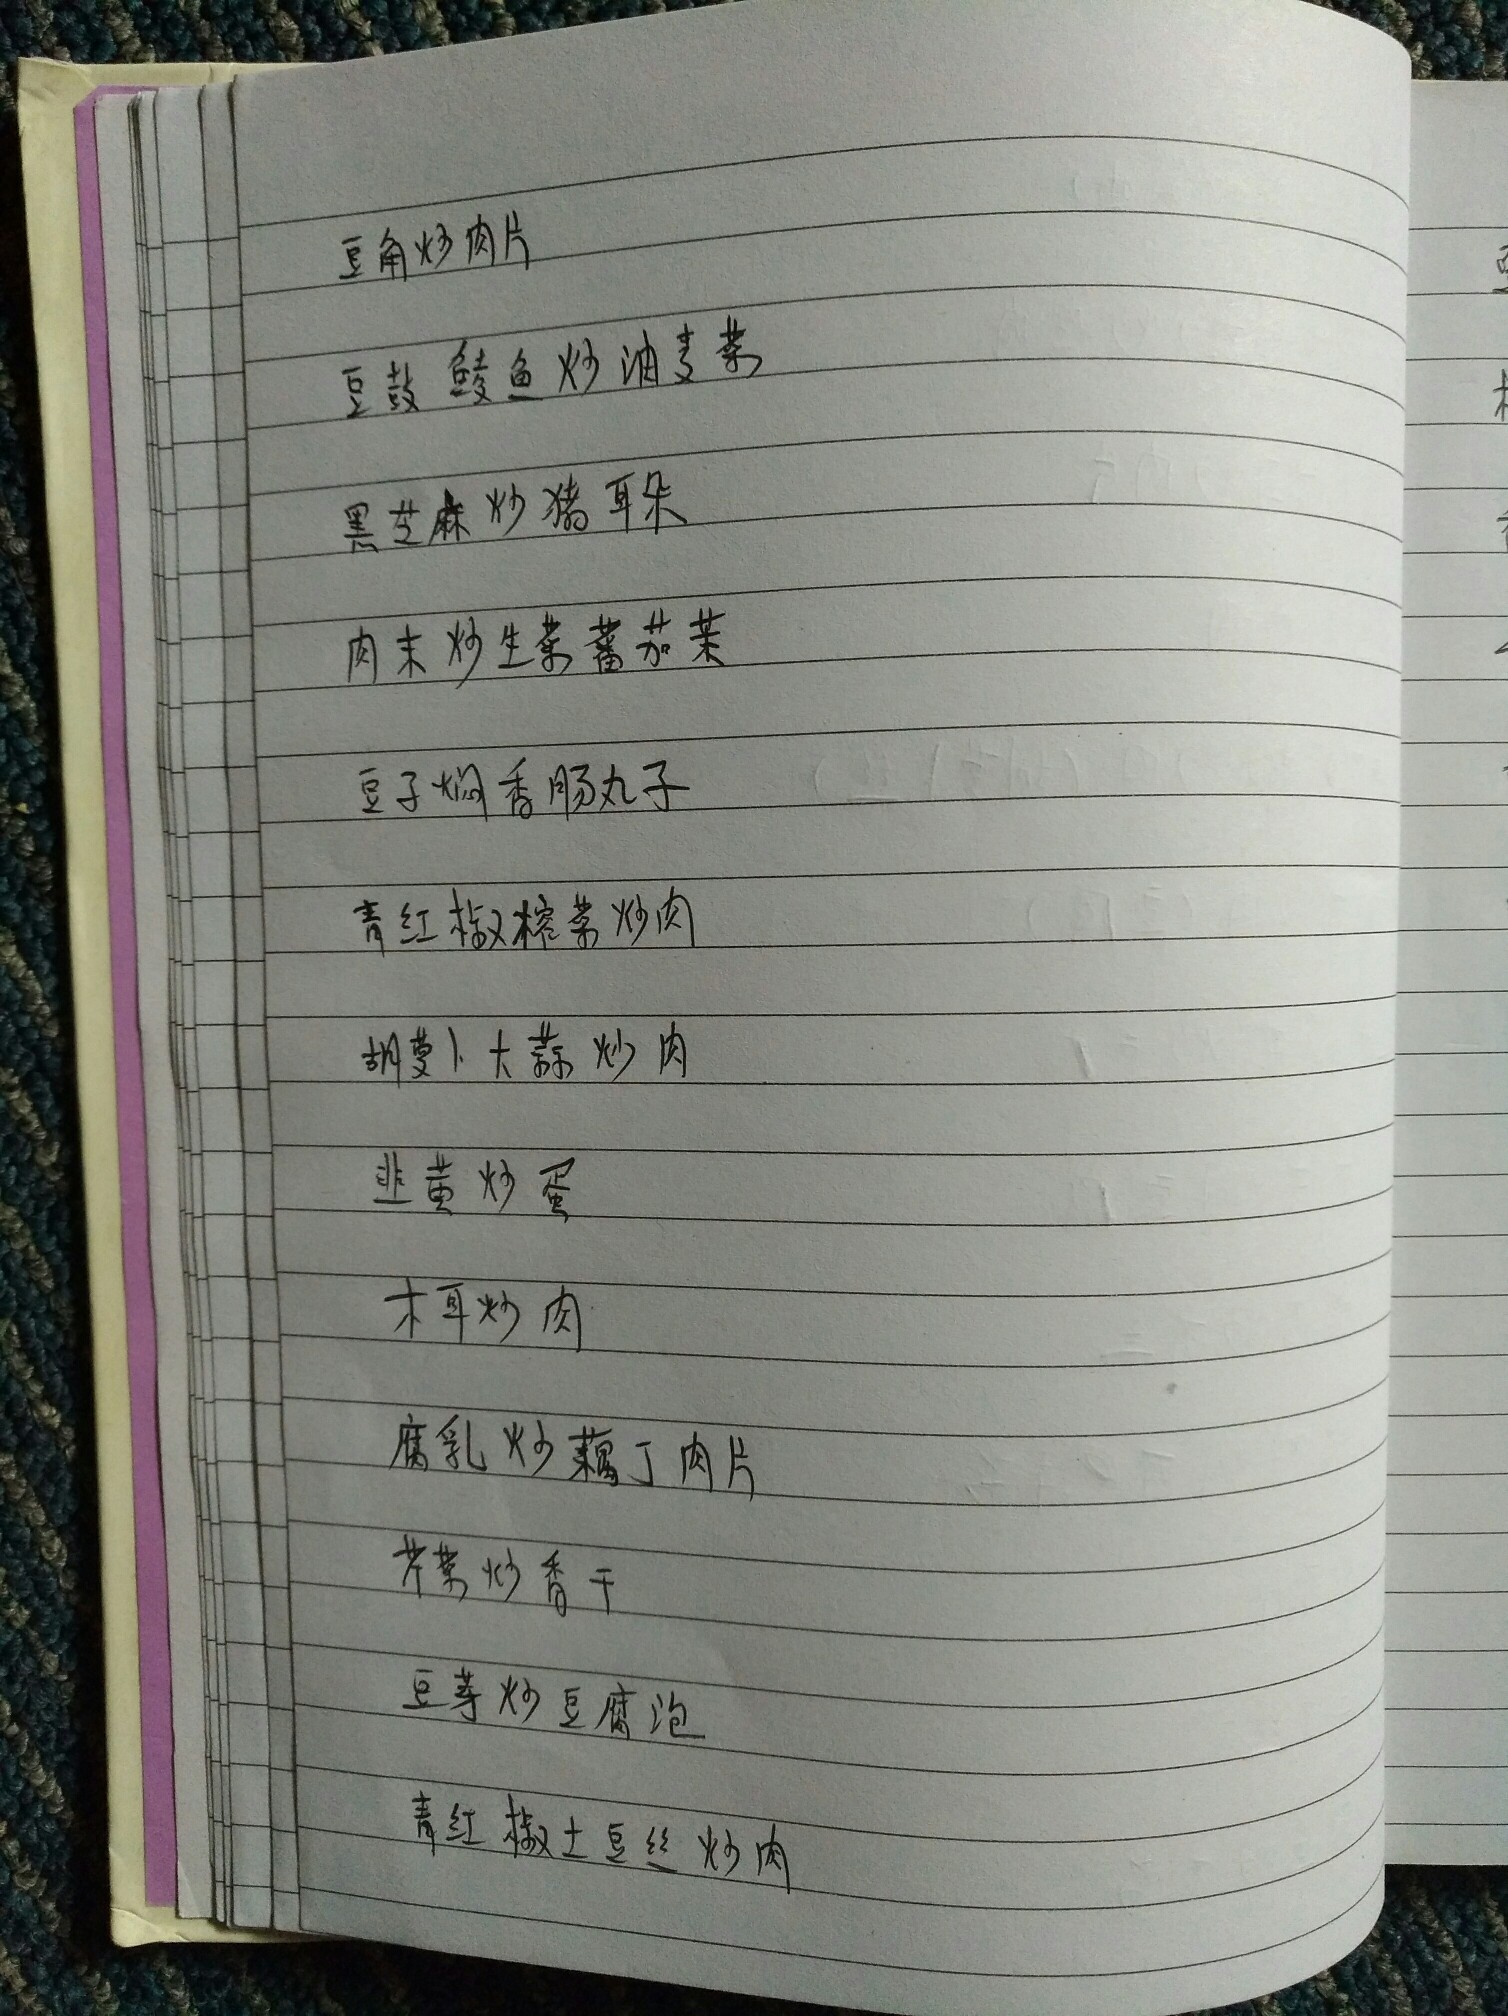 豆角炒肉片
豆鼓鲮鱼炒油麦菜
黑芝麻炒猪耳朵
肉末炒生菜蕃茄茉
豆子焖香肠丸子
青红椒榨菜炒肉
胡萝卜大蒜炒肉
韭黄炒蛋
木耳炒肉
腐乳炒藕丁肉片
芹菜炒香干
豆芽炒豆腐泡
青红椒土豆丝炒肉